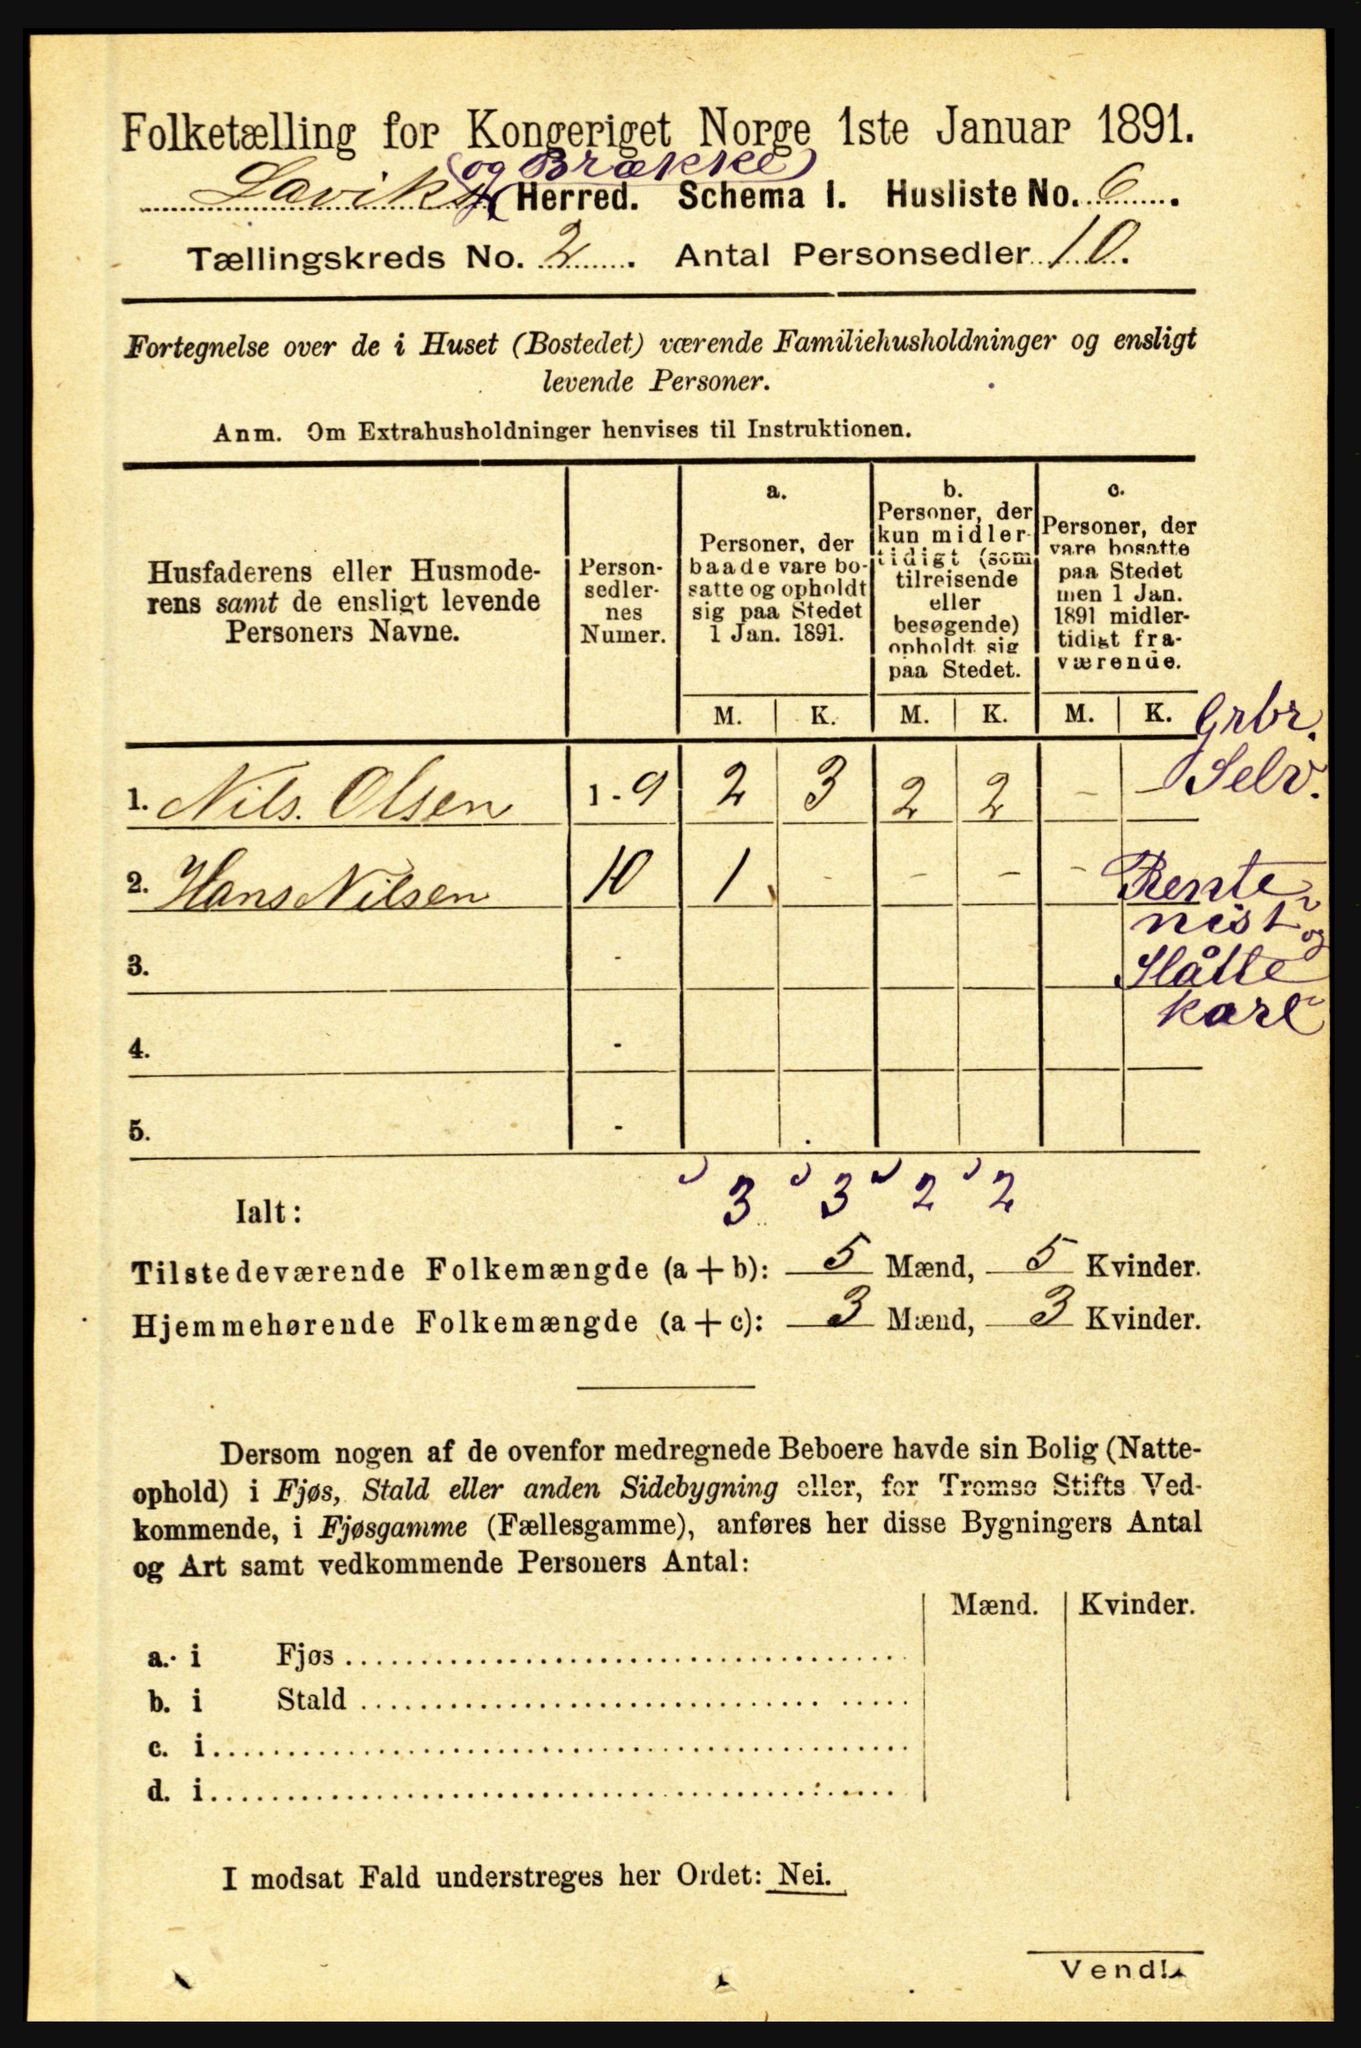 Folketælling for Kongeriget Norge 1ste Januar 1891.
(og Brække)
Laviks Herred. Schema I. Husliste No. 6.
Tællingskreds No. 2. Antal Personsedler 10.
Fortegnelse over de i Huset (Bostedet) værende Familiehusholdninger og ensligt
levende Personer.
Anm. Om Extrahusholdninger henvises til Instruktionen.
Husfaderens eller Husmode-
rens samt de ensligt levende
Personers Navne.
Person-
sedler-
nes
Numer.
a.
Personer, der
baade vare bo-
satte og opholdt
sig paa Stedet
1 Jan. 1891.
b.
Personer, der
kun midler-
tidigt (som
tilreisende
eller
besøgende)
opholdt sig
paa Stedet.
c.
Personer, der
vare bosatte
paa Stedet
men 1 Jan.
1891 midler-
tidigt fra-
værende.
M. K. M. K. M. K.
Grbr.
Selv.
1. Nils. Olsen 1 - 9 2 3 2 2 - -
2. Hans Nilsen 10 1 - - - -
Rente-
nist og
Slåtte
karl
3. -
4. -
5. -
Ialt: 3 3 2 2
Tilstedeværende Folkemængde (a + b): 5 Mænd, 5 Kvinder.
Hjemmehørende Folkemængde (a + c): 3 Mænd, 3 Kvinder.
Dersom nogen af de ovenfor medregnede Beboere havde sin Bolig (Natte-
ophold) i Fjøs, Stald eller anden Sidebygning eller, for Tromsø Stifts Ved-
kommende, i Fjøsgamme (Fællesgamme), anføres her disse Bygningers Antal
og Art samt vedkommende Personers Antal:
Mænd. Kvinder.
a. i Fjøs
b. i Stald
c. i
d. i
I modsat Fald understreges her Ordet: Nei.
Vend!